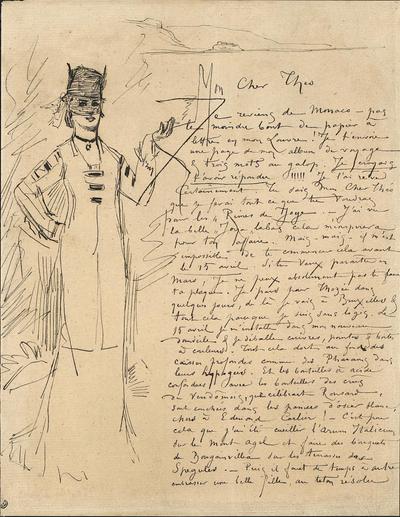 Mon Cher Théo
Je reviens de Monaco - pas
le moindre bout de papier à
lettres en mon Louvre! Je t'envoie
une page de mon album de voyage
& trois mots au galop. Je
répondre !!!!! Je t'ai
Certainement. Tu sais, mon Cher Théo
que je ferai tout ce que tu voudras
pour les 4 J'ai vu
la belle là bas cela
pour ton affaire. Mais - mais - il m'est
impossible de te commencer cela avant
le 15 avril. Si tu veux paraître en
Mars, je ne peux absolument pas te faire
ta planche. Je pars pour dans
quelques jours, de là je vais à Bruxelles &
tout cela parceque je suis sans logis. Le
15 avril je m'installe dans mon nouveau
domicile & je déballe cuivres, pointes & boîtes
à couleurs. Tout cela dort au fond des
caisses profondes comme des Pharaons dans
leurs hypogées. Et les bouteilles à acide
confondues avec les bouteilles des crus
du Vendomois, que célébrait Ronsard,
sont couchées dans les paniers d'osier blanc,
chers à Edmond Carlier! C'est pour
cela que j'ai été cueillir l'Arum Italicum
sur le Mont Agel et faire des bouquets
de Bougainvillea sur les terrasses des
Spegules. - Puis il faut de temps à autre
embrasser une belle fille au téton résolu